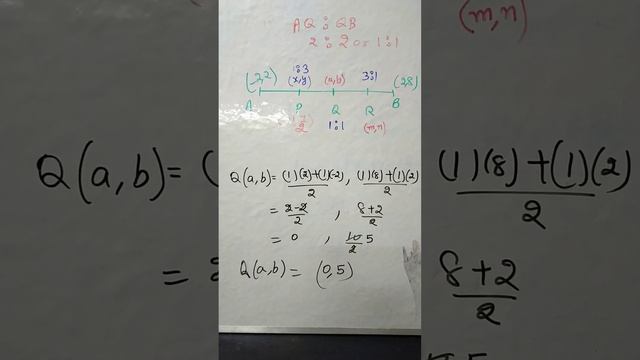 AQ : QB
2 : 2 or 1 : 1
(m,n)
1:3
(-2,2) (x,y) (a,b) 3:1 (2,8)
A P Q R B
1:1 (m,n)
Q(a,b) = (1)(2)+(1)(-2)/2 , (1)(8)+(1)(2)/2
= 2-2/2 , 8+2/2
= 0 , 10/2 5
Q(a,b) = (0,5)
Q(a,b) = (
(1)(8)+(1)(2)/2
=
8+2/2